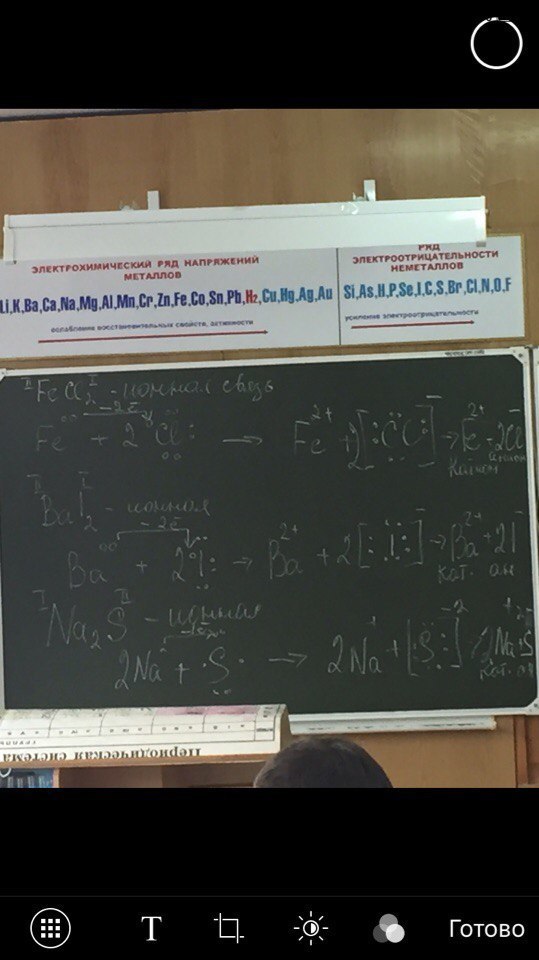 ЭЛЕКТРОХИМИЧЕСКИЙ РЯД НАПРЯЖЕНИЙ
МЕТАЛЛОВ
Li,K,Ba,Ca,Na,Mg,Al,Mn,Cr,Zn,Fe,Co,Sn,Pb,H₂,Cu,Hg,Ag,Au
ослабление восстановительных свойств, активности
РЯД
ЭЛЕКТРООТРИЦАТЕЛЬНОСТИ
НЕМЕТАЛЛОВ
Si,As,H,P,Se,I,C,S,Br,Cl,N,O,F
усиление электроотрицательности
II I
FeCl₂ - ионная связь
-2ē
Fe + 2Cl → Fe²⁺ + 2[Cl]⁻ → Fe²⁺ + 2Cl⁻
Катион Анион
II I
BaI₂ - ионная
-2ē
Ba + 2I → Ba²⁺ + 2[I]⁻ → Ba²⁺ + 2I⁻
кат. ан
I II
Na₂S - ионная
2Na + S → 2Na⁺ + [S]⁻² 2Na⁺ S
кат. ан
Периодическая система
Готово